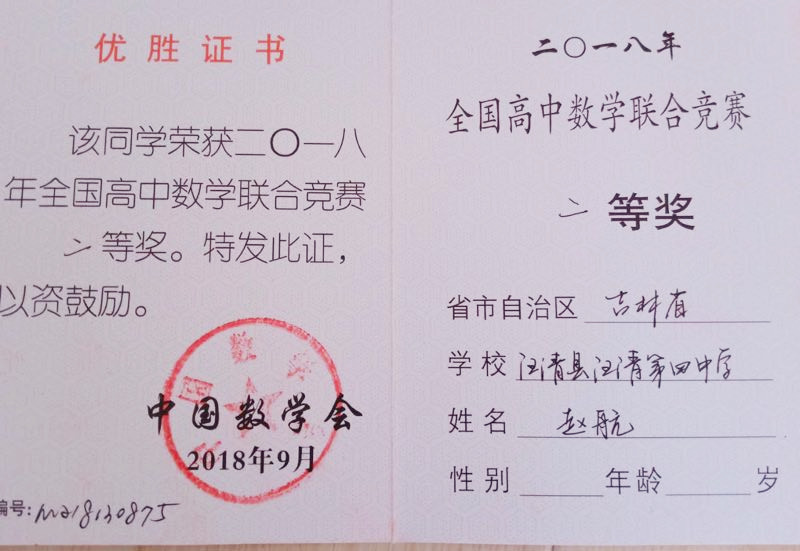 优胜证书
该同学荣获二〇一八
年全国高中数学联合竞赛
二等奖。特发此证，
以资鼓励。
中国数学会
2018年9月
编号:M218130875
二〇一八年
全国高中数学联合竞赛
二等奖
省市自治区 吉林省
学校 汪清县汪清第四中学
姓名 赵航
性别 年龄 岁